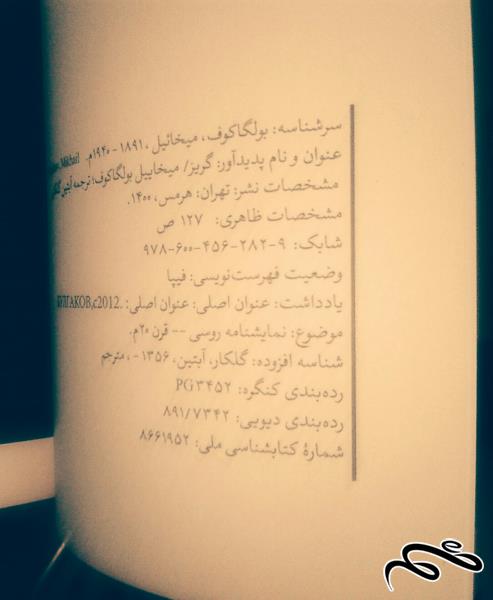 سرشناسه: بولگاکوف، میخائیل، ۱۸۹۱ - ۱۹۴۰م. Mikhail
عنوان و نام پدیدآور: گریز/ میخاییل بولگاکوف؛ ترجمه آبتین
مشخصات نشر: تهران: هرمس، ۱۴۰۰.
مشخصات ظاهری: ۱۲۷ ص
شابک: ۹-۲۸۲-۴۵۶-۶۰۰-۹۷۸
وضعیت فهرست‌نویسی: فیپا
یادداشت: عنوان اصلی: عنوان اصلی: .БУЛГАКОВ,c2012
موضوع: نمایشنامه روسی -- قرن ۲۰م.
شناسه افزوده: گلکار، آبتین، ۱۳۵۶ -، مترجم
رده‌بندی کنگره: PG۳۴۵۲
رده‌بندی دیویی: ۸۹۱/۷۳۴۲
شمارهٔ کتابشناسی ملی: ۸۶۶۱۹۵۲